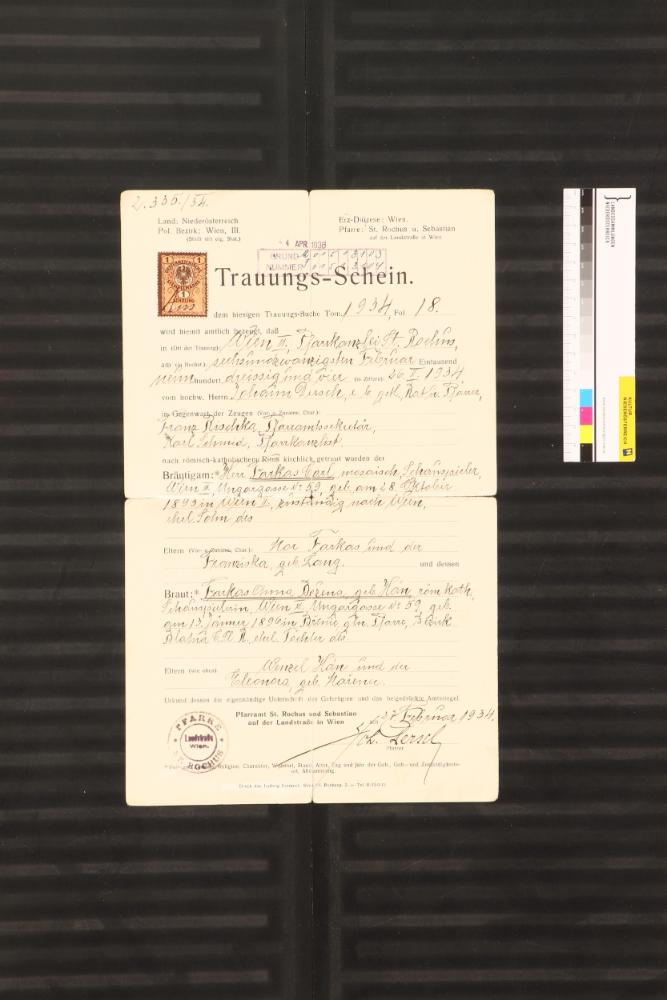 2.335/34.
Land: Niederösterreich
Pol. Bezirk: Wien, III.
(Stadt mit eig. Stat.)
Erz-Diözese: Wien.
Pfarre: St. Rochus u. Sebastian
auf der Landstraße in Wien
APR. 1938
GRUND
NUMMER
1 1
1
Trauungs-Schein.
dem hiesigen Trauungs-Buche Tom. 1934, Fol. 18.
wird hiemit amtlich bezeugt, daß
in (Ort der Trauung): Wien III. Pfarrkanzlei St. Rochus,
am (in Worten): sechsundzwanzigsten Februar Eintausend
neunhundert dreissig und vier (in Ziffern): 26. II. 1934,
vom hochw. Herrn Johann Dersch, e. b. geistl. Rat u. Pfarrer,
in Gegenwart der Zeugen (Vor- u. Zuname, Char.):
Franz Hischka, Pfarramtssekretär,
Karl Schmid, Pfarrkanzlist.
nach römisch-katholischem Ritus kirchlich getraut wurden der
Bräutigam:* Herr Farkas Carl, mosaisch, Schauspieler,
Wien III, Ungargasse Nr. 59, geb. am 28. Oktober
1893 in Wien I., zuständig nach Wien,
ehel. Sohn des
Eltern (Vor- u. Zuname, Char.): Mor Farkas und der
Franziska, geb. Lang. und dessen
Braut:* Farkas Anna geb. Hán, röm. kath.
Schauspielerin, Wien III, Ungargasse Nr. 59, geb.
am 13. Jänner 1896 in Pfarre, Bezirk
Blatná Č.S.R., ehel. Tochter des
Eltern (wie oben): Wenzel Hán und der
Eleonora, geb.
Urkund dessen die eigenhändige Unterschrift des Gefertigten und das beigedrückte Amtssiegel.
Pfarramt St. Rochus und Sebastian
auf der Landstraße in Wien
am 27. Februar 1934.
Joh. Dersch
Pfarrer
PFARRE
Landstraße
Wien.
ST. ROCHUS
Religion, Charakter, Wohnort, Stand, Alter, Tag und Jahr der Geb., Geb.- und Zuständigkeits-
ort, Abstammung.
LANDESSAMMLUNGEN
NIEDERÖSTERREICH
KULTUR
NIEDERÖSTERREICH